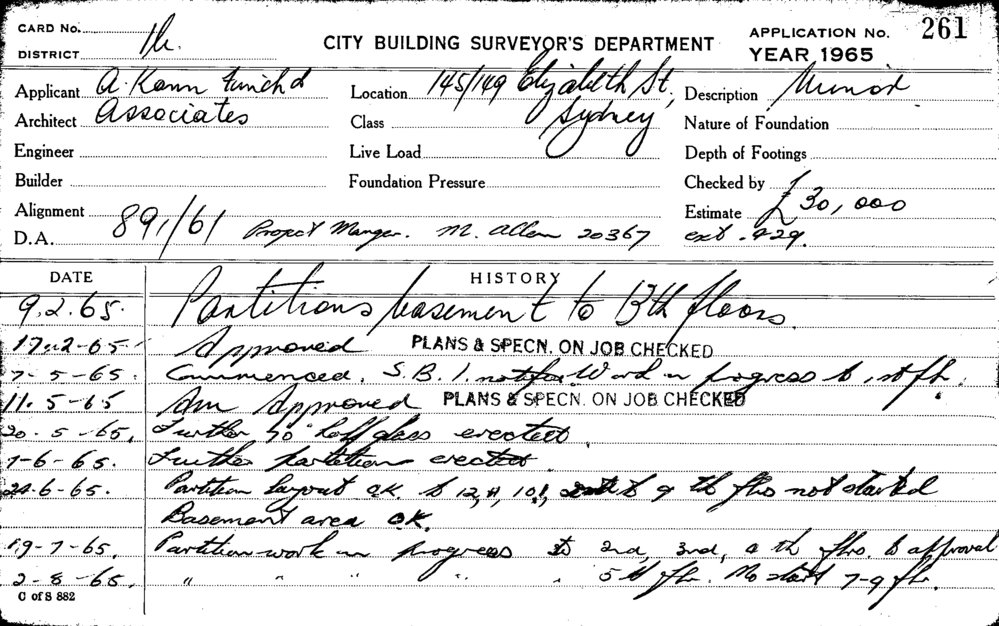 CARD No.
DISTRICT
CITY BUILDING SURVEYOR'S DEPARTMENT
APPLICATION No. 261
YEAR 1965
Applicant A. Kann &
Architect Associates
Engineer
Builder
Alignment
D.A. 891/61 Project Manger. M. Allen 20367 ext. 429.
Location 145/149 Elizabeth St, Sydney
Class
Live Load
Foundation Pressure
Description Minor
Nature of Foundation
Depth of Footings
Checked by
Estimate £30,000
DATE HISTORY
9.2.65. Partitions basement to 13th floors.
17.2-65 Approved PLANS & SPECN. ON JOB CHECKED
7-5-65. Commenced. S.B.I. Work in progress to 1st flr.
11.5-65 Am Approved PLANS & SPECN. ON JOB CHECKED
20.5-65. Further erected.
7-6-65. Further partitions erected.
6-65. Partition layout OK. to 12, 11, 10, to 9 th flrs not started
Basement area OK.
19-7-65. Partition work in progress to 2nd, 3rd, 4 th flrs. to approval
2-8-65. " " " " " 5th flr. No start 7-9 flr.
C of S 882